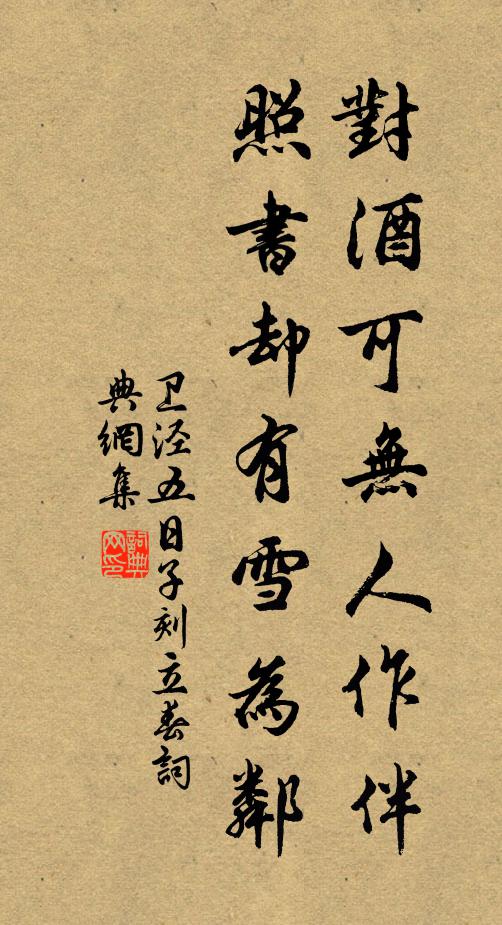 對酒可無人作伴
照書却有雪為鄰
卫泾五日子刻立春詞
典網集
詞典
网印